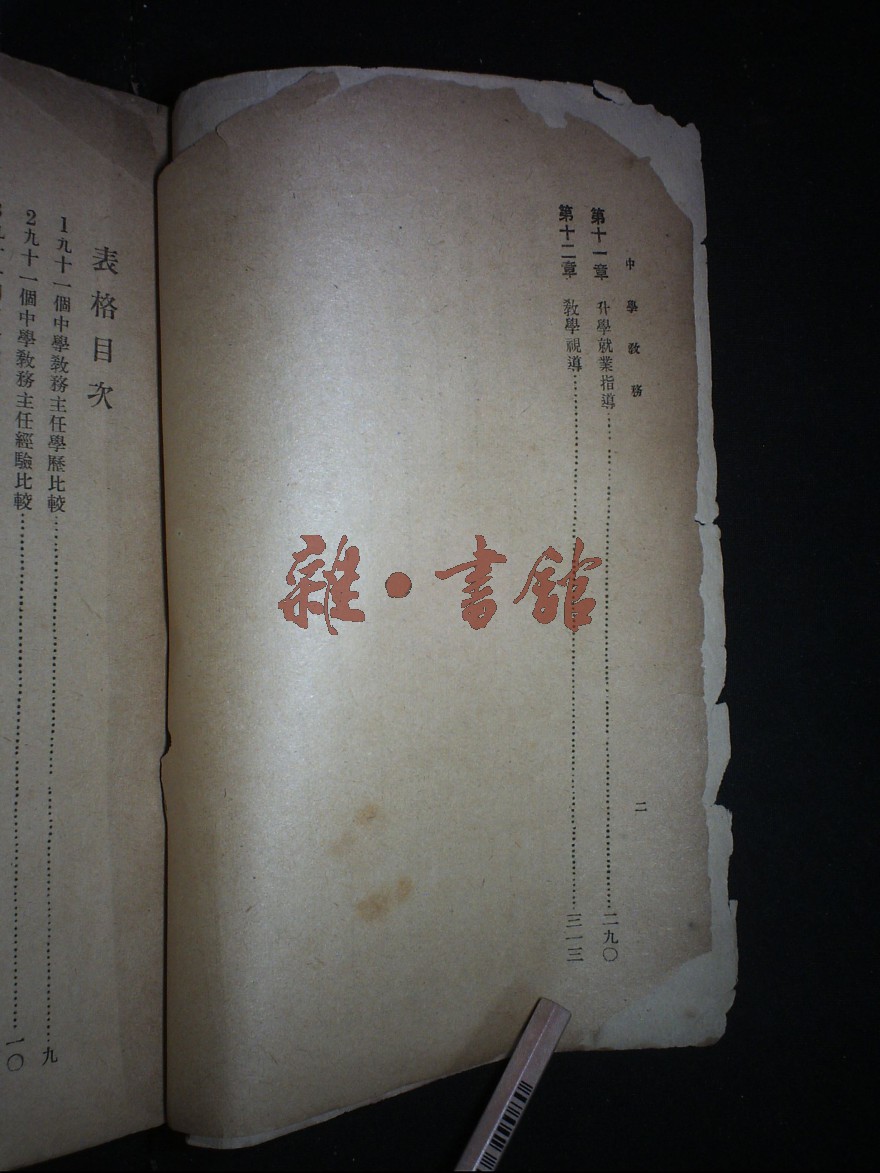 中學教務
第十一章　升學就業指導……二九〇
第十二章　教學視導……三一三
二
雜・書館
表格目次
1九十一個中學教務主任學歷比較……九
2九十一個中學教務主任經驗比較……一〇